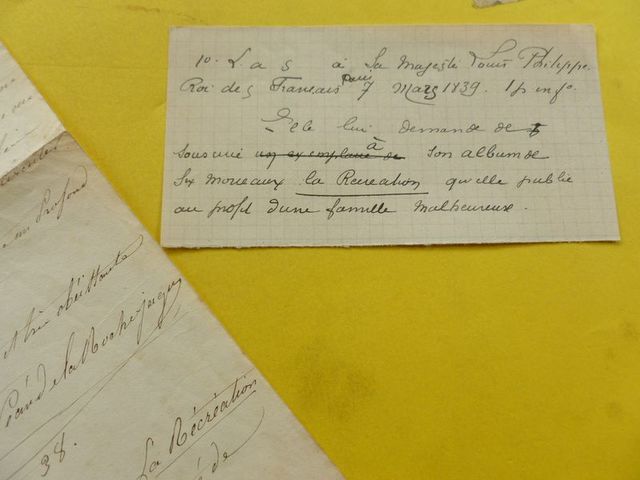 1º. L. a s à Sa Majesté Louis Philippe.
Roi des Francais Paris 7 Mars 1839. 1 p in fº.
Elle lui demande de
souscrire un exemplaire de à son album de
Six morceaux la Recreation qu'elle publie
au profit d'une famille malheureuse.
profond
et très obéissante
de la Rochejaque
38.
La Récréation
de